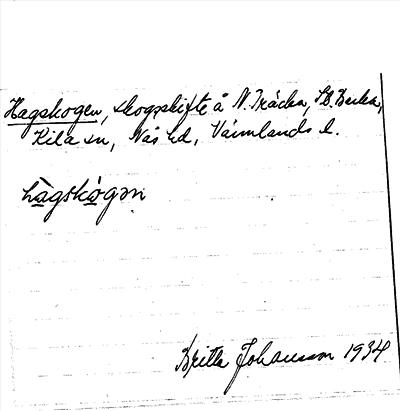 Hagskogen, skogsskifte å N. Träcka, St. Backa,
Kila sn, Näs hd, Värmlands l.
hàgskògən
Britta Johansson 1934